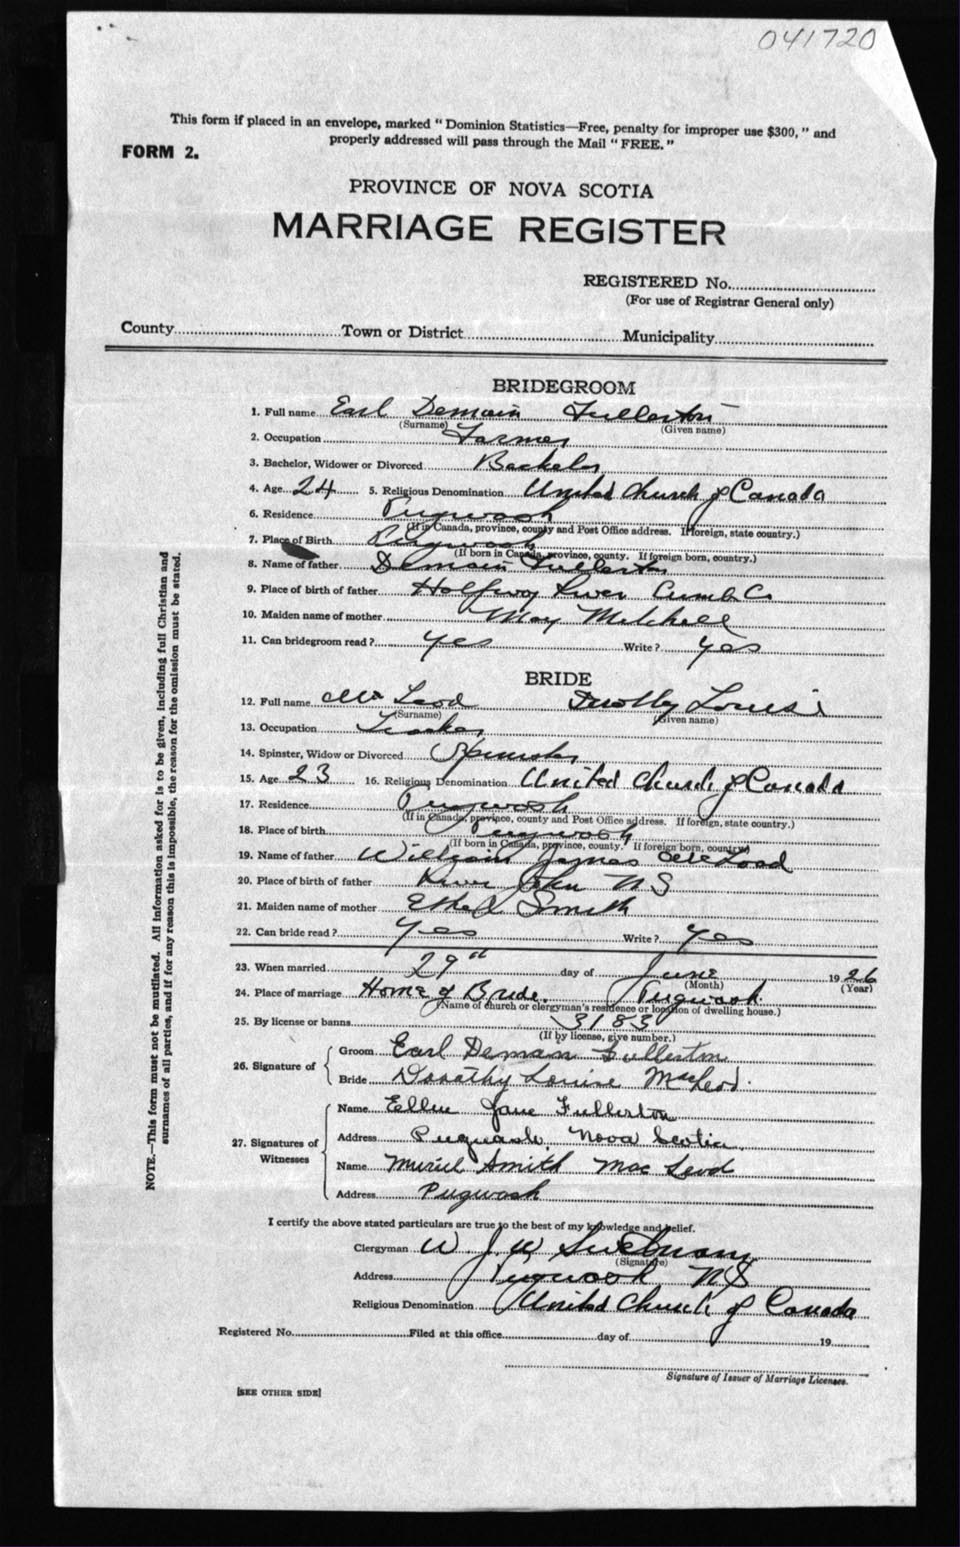 041720
This form if placed in an envelope, marked "Dominion Statistics—Free, penalty for improper use $300," and
properly addressed will pass through the Mail "FREE."
FORM 2.
PROVINCE OF NOVA SCOTIA
MARRIAGE REGISTER
REGISTERED No.
(For use of Registrar General only)
County Town or District Municipality
BRIDEGROOM
1. Full name Earl Demain Fullerton
(Surname) (Given name)
2. Occupation Farmer
3. Bachelor, Widower or Divorced Bachelor
4. Age 24 5. Religious Denomination United Church of Canada
6. Residence Pugwash
(If in Canada, province, county and Post Office address. If foreign, state country.)
7. Place of Birth Pugwash
(If born in Canada, province, county. If foreign born, country.)
8. Name of father Demain Fullerton
9. Place of birth of father Halfway River Cumb. Co
10. Maiden name of mother May Mitchell
11. Can bridegroom read? yes Write? yes
BRIDE
12. Full name McLeod Louise
(Surname) (Given name)
13. Occupation Teacher
14. Spinster, Widow or Divorced Spinster
15. Age 23 16. Religious Denomination United Church of Canada
17. Residence Pugwash
(If in Canada, province, county and Post Office address. If foreign, state country.)
18. Place of birth Pugwash
(If born in Canada, province, county. If foreign born, country)
19. Name of father William James McLeod
20. Place of birth of father River John N S
21. Maiden name of mother Ethel Smith
22. Can bride read? Yes Write? Yes
23. When married 29th day of June 1926
(Month) (Year)
24. Place of marriage Home of Bride, Pugwash.
(Name of church or clergyman's residence or location of dwelling house.)
25. By license or banns 3183
(If by license, give number.)
26. Signature of Groom Earl Demain Fullerton
Bride Dorothy Louise MacLeod.
27. Signatures of Witnesses Name Ellen Jane Fullerton
Address Pugwash, Nova Scotia
Name Muriel Smith MacLeod
Address Pugwash
I certify the above stated particulars are true to the best of my knowledge and belief.
Clergyman W J W
(Signature)
Address Pugwash, NS
Religious Denomination United Church of Canada
Registered No. Filed at this office day of 19
Signature of Issuer of Marriage Licenses.
[SEE OTHER SIDE]
NOTE.—This form must not be mutilated. All information asked for is to be given, including full Christian and
surnames of all parties, and if for any reason this is impossible, the reason for the omission must be stated.